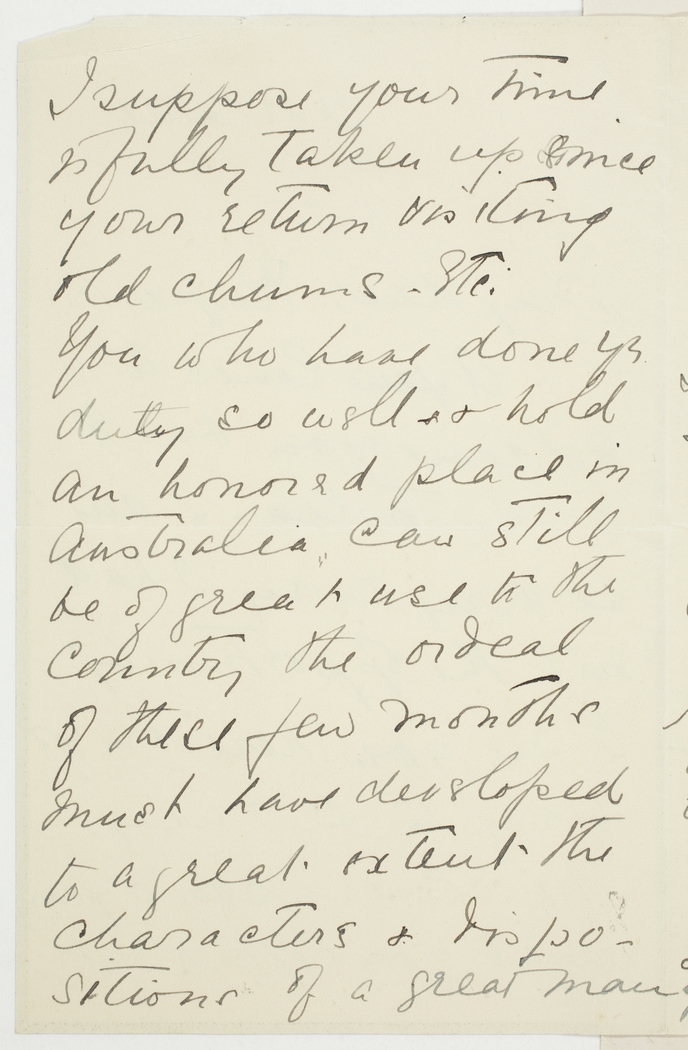 I suppose your time
is fully taken up since
your return visiting
old chums. Etc.
You who have done yr
duty so well & hold
an honored place in
Australia, can still
be of great use to the
Country the ordeal
of these few months
must have developed
to a great extent the
characters & dispo-
sitions of a great many